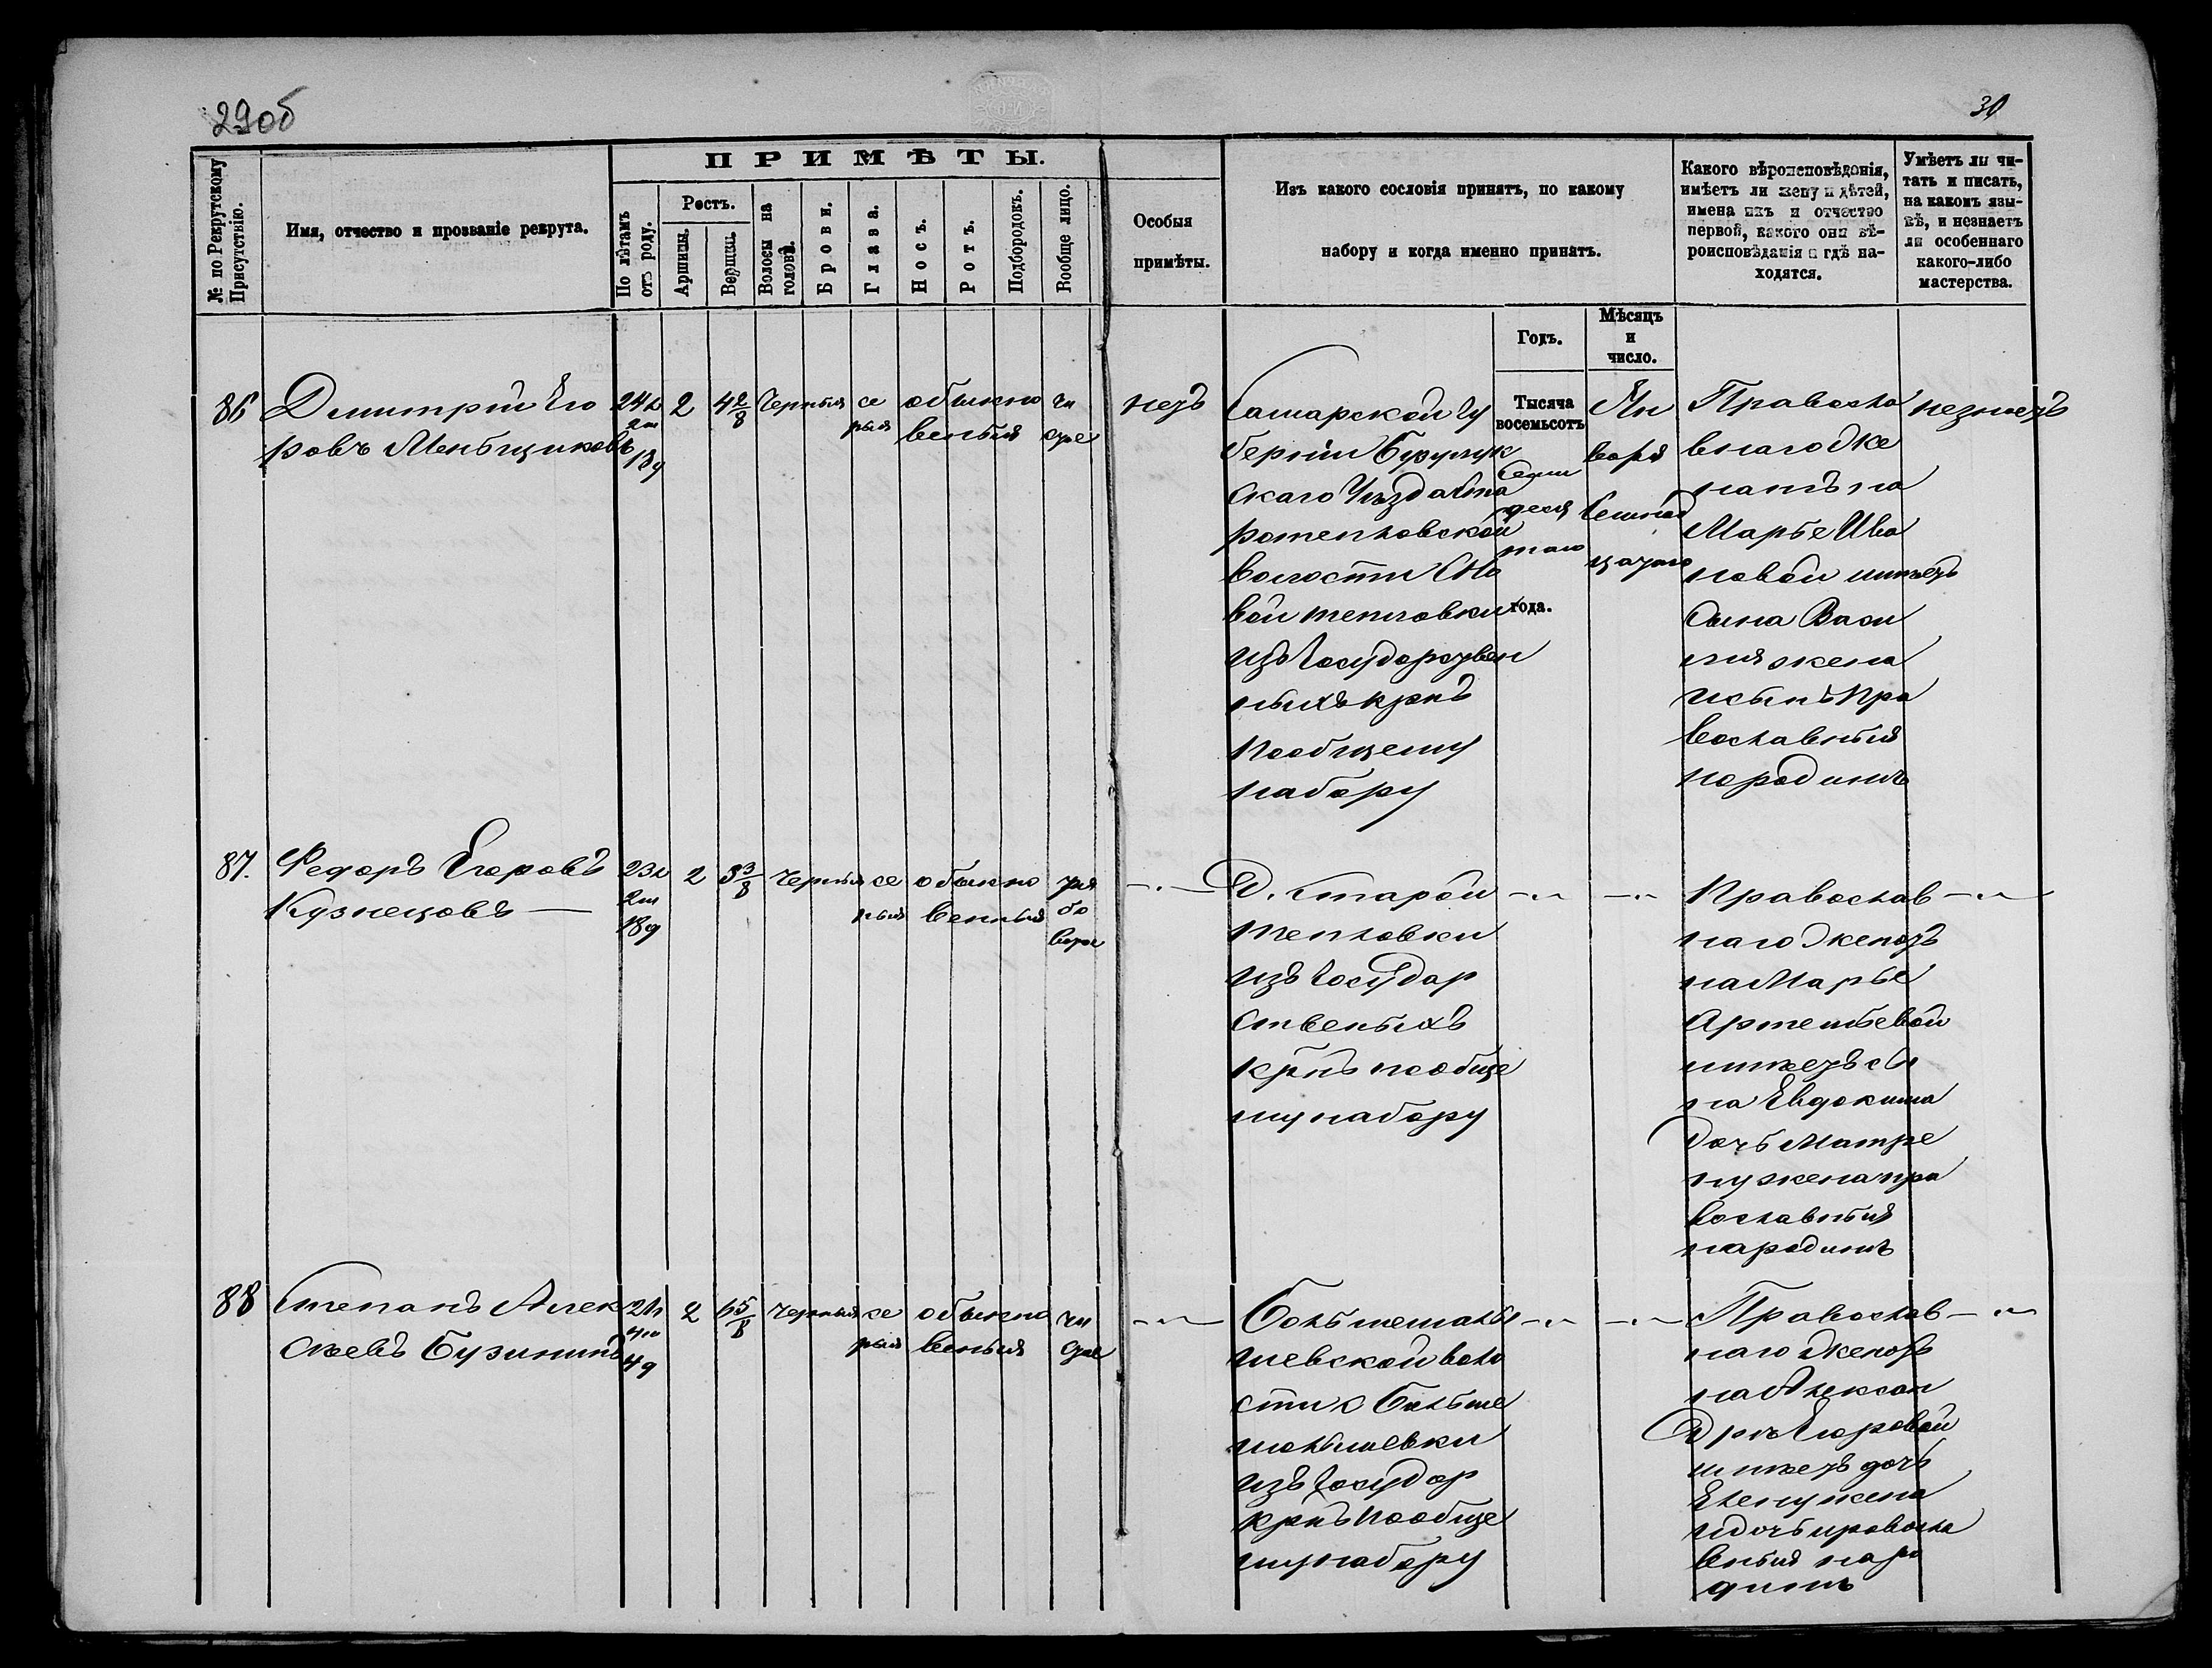 29об
30
ПРИМѢТЫ.
№ по Рекрутскому Присутствію.
Имя, отчество и прозваніе рекрута.
По лѣтамъ отъ роду.
Ростъ.
Аршины.
Вершки.
Волосы на головѣ.
Брови.
Глаза.
Носъ.
Ротъ.
Подбородокъ.
Вообще лицо.
Особыя
примѣты.
Изъ какого сословія принятъ, по какому
набору и когда именно принятъ.
Годъ.
Мѣсяцъ
и
число.
Какого вѣроисповѣданія,
имѣетъ ли жену и дѣтей,
имена ихъ и отчество
первой, какого они вѣ-
роисповѣданія и гдѣ на-
ходятся.
Умѣетъ ли чи-
тать и писать,
на какомъ язы-
кѣ, и незнаетъ
ли особеннаго
какого-либо
мастерства.
86
Дмитрій Его
ровъ Меньщиковъ
24 л
2 м
13 д
2
4 2/8
Черныя
се
рыя
обыкно
венныя
чи
стое
нетъ
Самарской Гу
берніи Бузулук
скаго Уѣзда Ста
ротепловской
волости С Но
вой тепловки
изъ Государствен
ныхъ крнъ
по общему
набору
Тысяча
восемьсотъ
Семи
деся
таго
года.
Ян
варя
Семнад
цатаго
Правосла
внаго Же
натъ на
Марье Ива
новой имѣетъ
Сына Васи
лия жена
и сынъ Пра
вославныя
на родинѣ
незнаетъ
87.
Федоръ Егоровъ
Кузнецовъ —
23 л
2 м
18 д
2
3 3/8
Черныя
се
рыя
обыкно
венныя
ря
бо
ватое
— „ —
Д. Старой
тепловки
изъ Государ
ственыхъ
крнъ по обще
му набору
— „
— „
Православ
наго Женатъ
на Марье
Артемьевой
имѣетъ сы
на Евдокима
дочь Матре
ну жена пра
вославныя
на родинѣ
— „ —
88
Степанъ Алек
сѣевъ Бузинин
2
5/8
Черныя
се
рыя
обыкно
венныя
чи
стое
— „ —
волости
изъ Государ
крнъ по обще
му набору
— „
— „
Православ
наго Женатъ
на Алексан
дрѣ Егоровой
имѣетъ дочь
Елену жена
и дочь правосла
вныя на ро
динѣ
— „